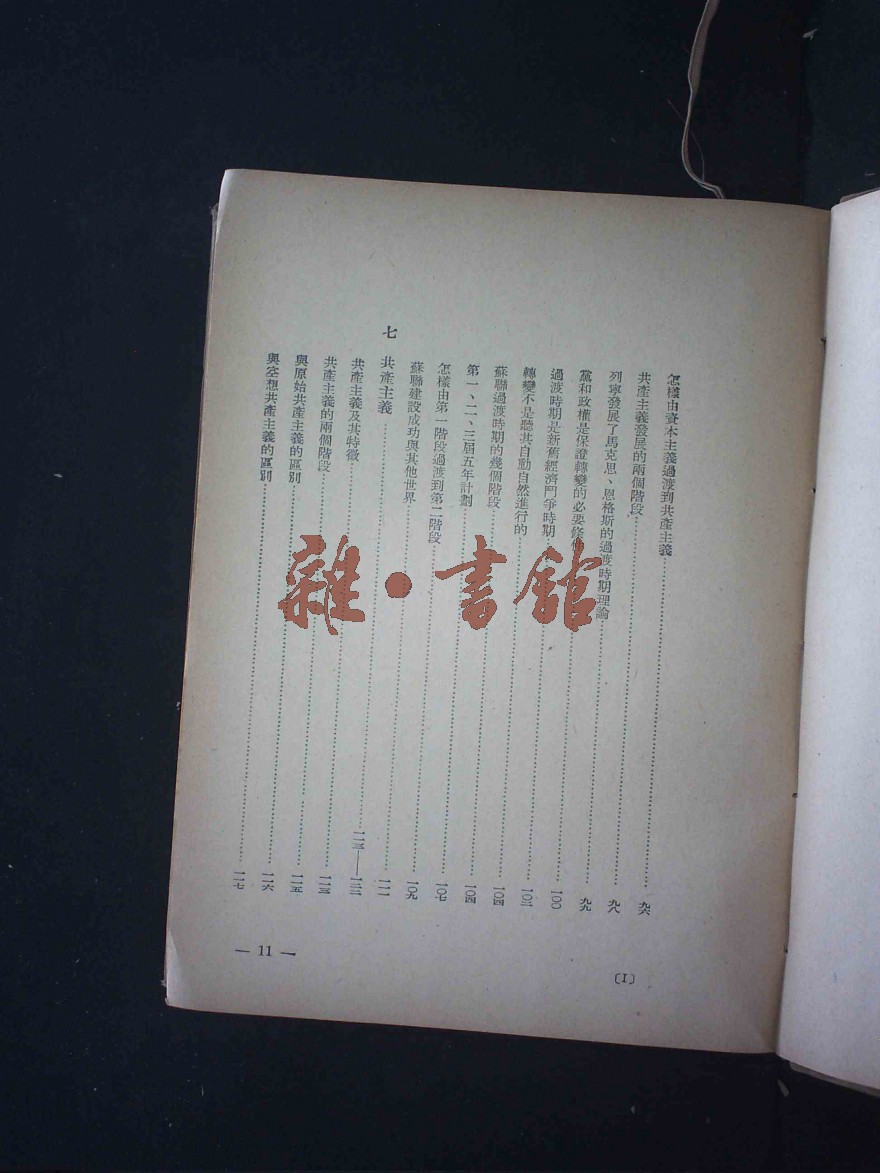 怎樣由資本主義過渡到共產主義……九六
共產主義發展的兩個階段……九八
列寧發展了馬克思、恩格斯的過渡時期理論……九九
黨和政權是保證轉變的必要條件……一〇〇
過渡時期是新舊經濟鬥爭時期……一〇二
轉變不是聽其自動自然進行的……一〇四
蘇聯過渡時期的幾個階段……一〇四
第一、二、三屆五年計劃……一〇七
怎樣由第一階段過渡到第二階段……一〇九
蘇聯建設成功與其他世界……一一一
七 共產主義……一一三——一二二
共產主義及其特徵……一一三
共產主義的兩個階段……一一五
與原始共產主義的區別……一一六
與空想共產主義的區別……一一七
— 11 —
〔I〕
雜·書館